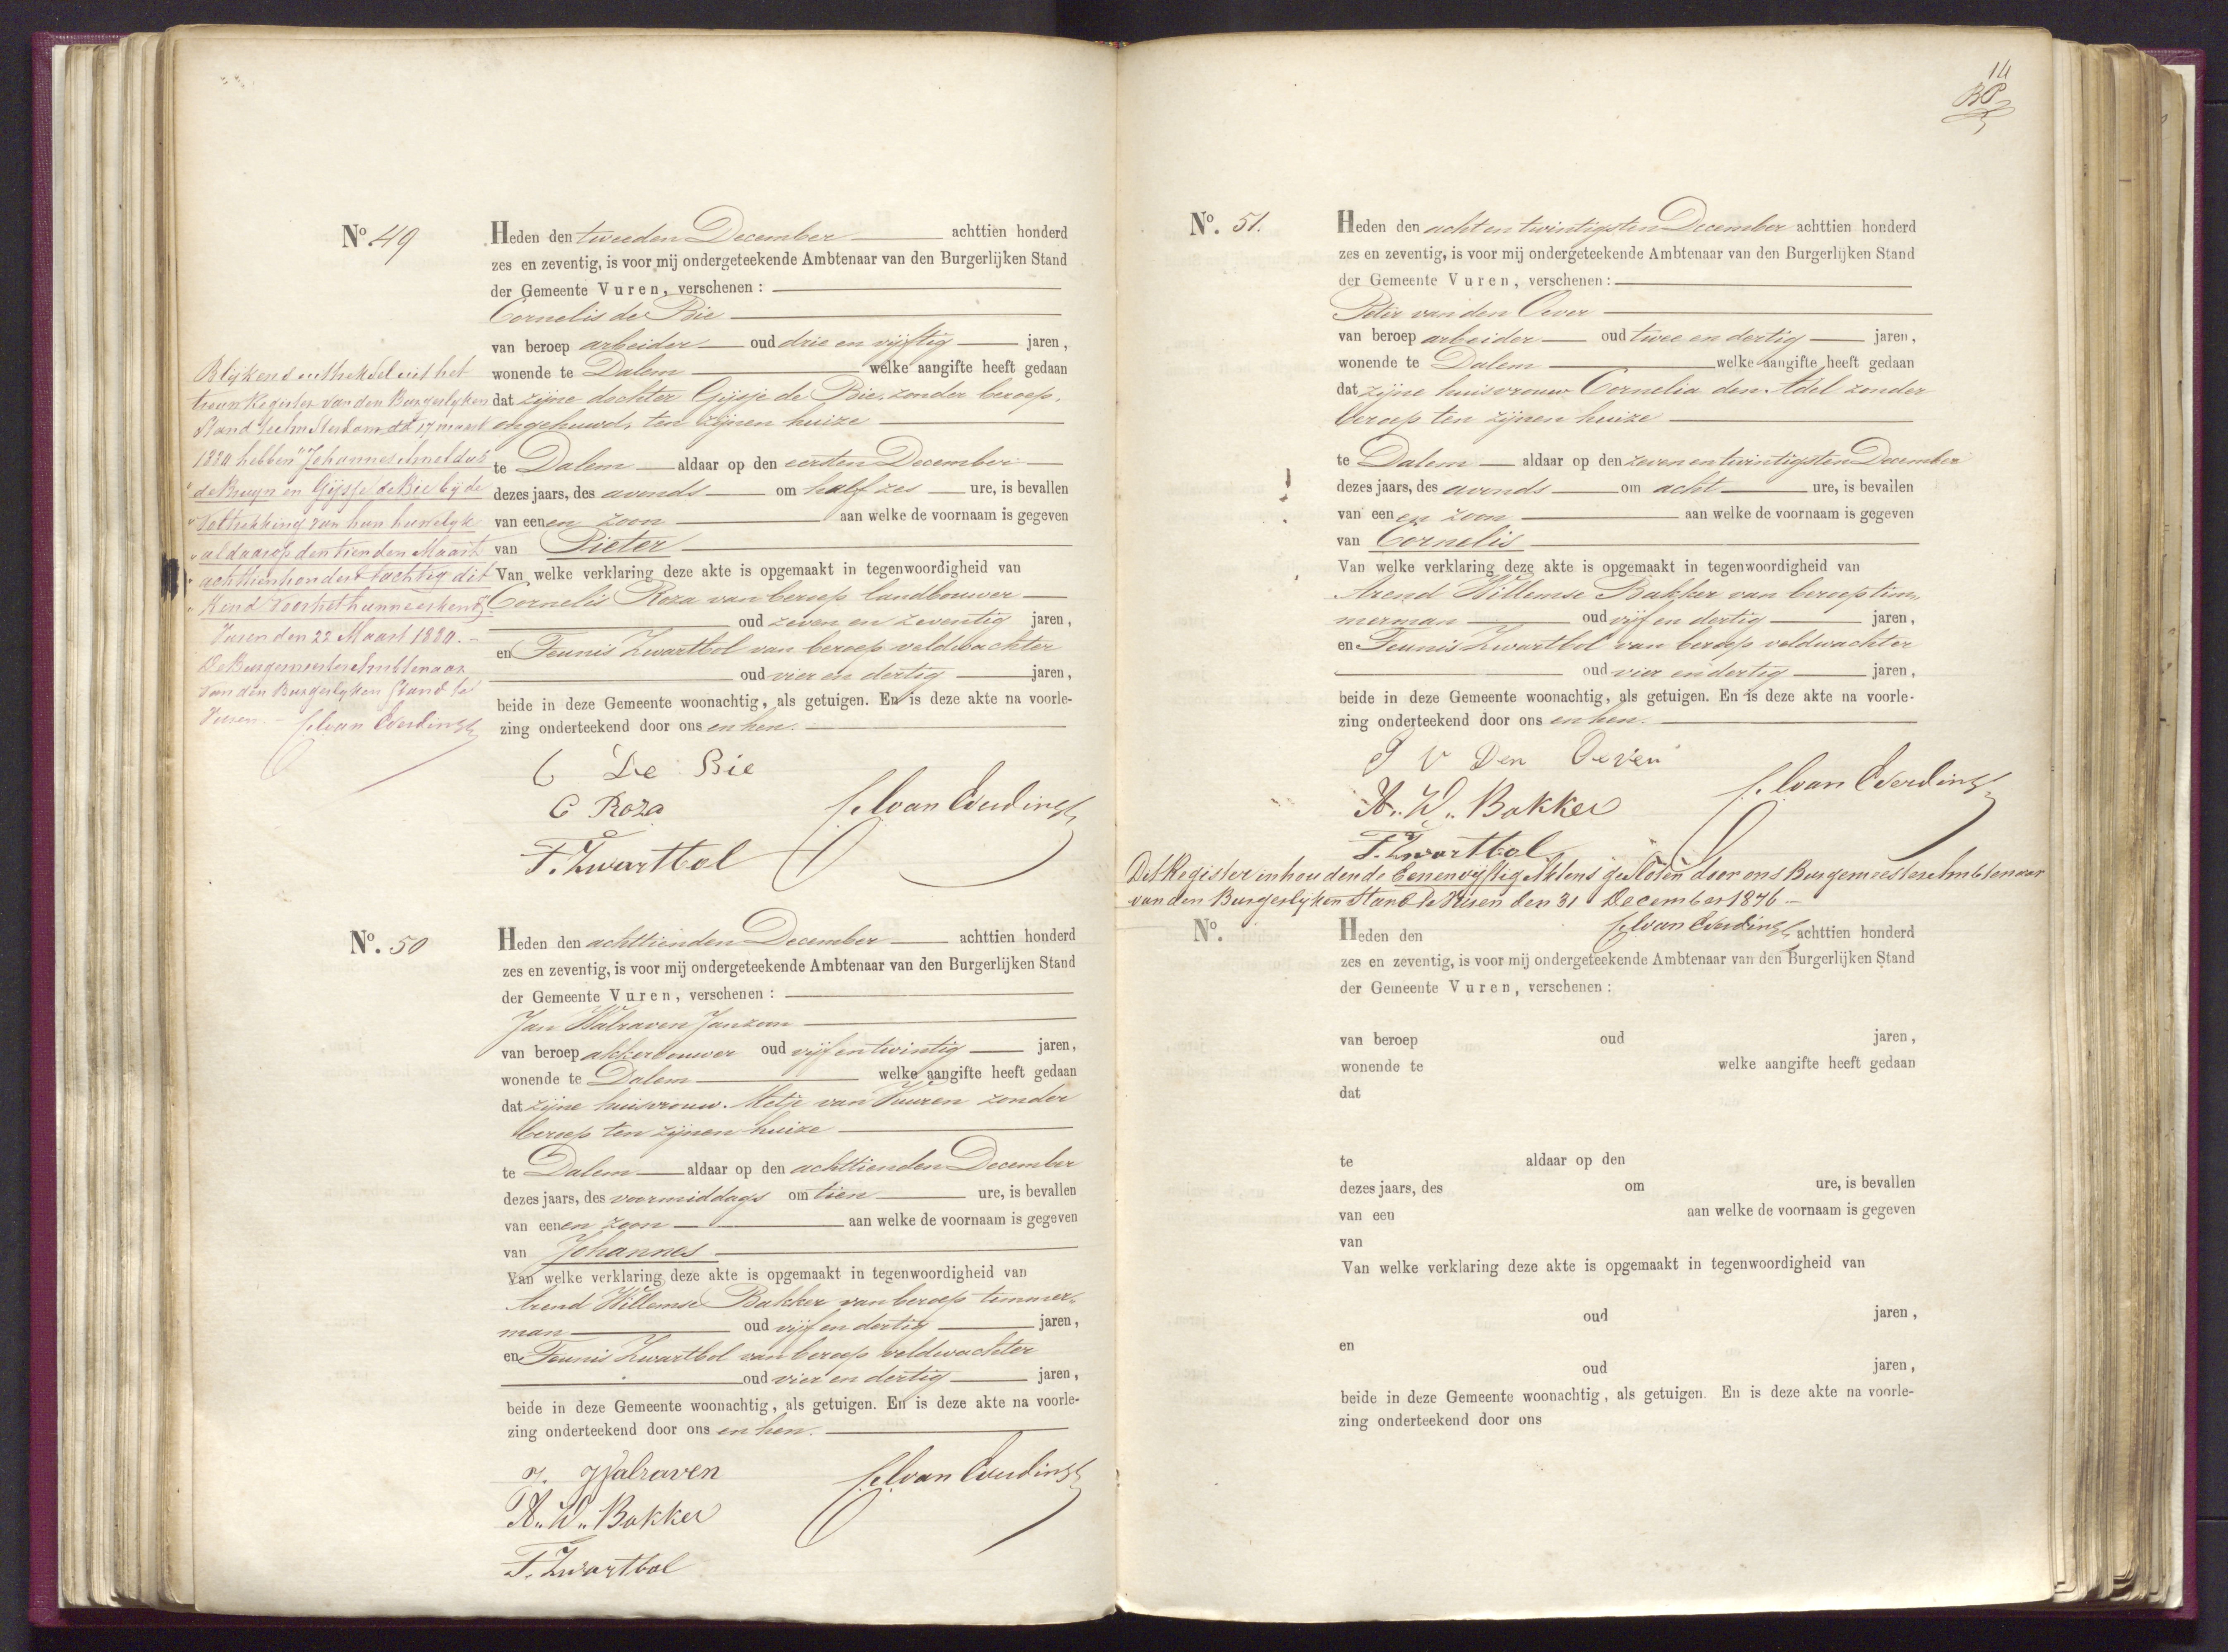 No 49
Heden den tweeden December achttien honderd
zes en zeventig, is voor mij ondergeteekende Ambtenaar van den Burgerlijken Stand
der Gemeente Vuren, verschenen:
Cornelis de Bie
van beroep arbeider oud drie en vijftig jaren,
wonende te Dalem welke aangifte heeft gedaan
dat zijne dochter Gijsje de Bie, zonder beroep,
ongehuwd, ten zijnen huize
te Dalem aldaar op den eersten December
dezes jaars, des avonds om half zes ure, is bevallen
van eenen zoon aan welke de voornaam is gegeven
van Pieter
Van welke verklaring deze akte is opgemaakt in tegenwoordigheid van
Cornelis Roza van beroep landbouwer
oud zeven en zeventig jaren,
en Teunis Zwartbol van beroep veldwachter
oud vier en dertig jaren,
beide in deze Gemeente woonachtig, als getuigen. En is deze akte na voorle-
zing onderteekend door ons en hen.
C De Bie
C Roza
T. Zwartbol
van Everdingen
Blijkend uittreksel uit het
trouw Register van den Burgerlyken
Stand te dd 17 maart
1880 hebben "Johannes
" de Bruyn en Gijsje de Bie bij de
" voltrekking van hun huwelyk
" aldaar op den tienden Maart
" achttienhonderd tachtig dit
" Kind voor het hunne erkend"
Vuren den 22 Maart 1880.
De Burgemeester Ambtenaar
van den Burgerlyken Stand te
Vuren.
van Everdingen
No. 50
Heden den achttienden December achttien honderd
zes en zeventig, is voor mij ondergeteekende Ambtenaar van den Burgerlijken Stand
der Gemeente Vuren, verschenen:
Jan Walraven Janzoon
van beroep akkerbouwer oud vijf en twintig jaren,
wonende te Dalem welke aangifte heeft gedaan
dat zijne huisvrouw Metje van Vuuren zonder
beroep ten zijnen huize
te Dalem aldaar op den achttienden December
dezes jaars, des voormiddags om tien ure, is bevallen
van eenen zoon aan welke de voornaam is gegeven
van Johannes
Van welke verklaring deze akte is opgemaakt in tegenwoordigheid van
Arend Willemse Bakker van beroep timmer-
man oud vijf en dertig jaren,
en Teunis Zwartbol van beroep veldwachter
oud vier en dertig jaren,
beide in deze Gemeente woonachtig, als getuigen. En is deze akte na voorle-
zing onderteekend door ons en hen.
J. Walraven
A. W. Bakker
T. Zwartbol
van Everdingen
14
BP
No. 51.
Heden den acht en twintigsten December achttien honderd
zes en zeventig, is voor mij ondergeteekende Ambtenaar van den Burgerlijken Stand
der Gemeente Vuren, verschenen:
Peter van den Oever
van beroep arbeider oud twee en dertig jaren,
wonende te Dalem welke aangifte heeft gedaan
dat zijne huisvrouw Cornelia den Adel zonder
beroep ten zijnen huize
te Dalem aldaar op den zeven en twintigsten December
dezes jaars, des avonds om acht ure, is bevallen
van eenen zoon aan welke de voornaam is gegeven
van Cornelis
Van welke verklaring deze akte is opgemaakt in tegenwoordigheid van
Arend Willemse Bakker van beroep tim,
merman oud vijf en dertig jaren,
en Teunis Zwartbol van beroep veldwachter
oud vier en dertig jaren,
beide in deze Gemeente woonachtig, als getuigen. En is deze akte na voorle-
zing onderteekend door ons en hen.
P V Den Oever
A. W. Bakker
T. Zwartbol
van Everdingen
Dit Register inhoudende Eenenvyftig Aktens gesloten door ons Burgemeester Ambtenaar
van den Burgerlyken Stand te Vuren den 31 December 1876
van Everdingen
No.
Heden den achttien honderd
zes en zeventig, is voor mij ondergeteekende Ambtenaar van den Burgerlijken Stand
der Gemeente Vuren, verschenen:
van beroep oud jaren,
wonende te welke aangifte heeft gedaan
dat
te aldaar op den
dezes jaars, des om ure, is bevallen
van een aan welke de voornaam is gegeven
van
Van welke verklaring deze akte is opgemaakt in tegenwoordigheid van
oud jaren,
en
oud jaren,
beide in deze Gemeente woonachtig, als getuigen. En is deze akte na voorle-
zing onderteekend door ons